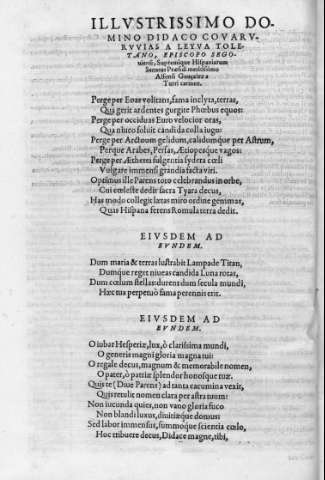 ILLVSTRISSIMO DO-
MINO DIDACO COVAR-
RVVIAS A LEYVA TOLE-
TANO, EPISCOPO SEGO-
uiensi, Supremique Hispaniarum
Senatus Præsidi meritissimo
Alfonsi Gonçalez a
Turri carmen.
Perge per Eoas volitans, fama inclyta, terras,
Qua gerit ardentes gurgite Phœbus equos:
Perge per occiduas Euro velocior oras,
Qua niueo soluit candida colla iugo:
Perge per Arctoum gelidum, calidumque per Austrum,
Perque Arabes, Persas, Æthiopasque vagos:
Perge per Ætherei fulgentia sydera cœli
Vulgare immensi grandia facta viri.
Optimus ille Parens toto celebrandus in orbe,
Cui cœleste dedit sacra Tyara decus,
Has modo collegit lætas miro ordine gemmas,
Quas Hispana ferens Romula terra dedit.
EIVSDEM AD
EVNDEM.
Dum maria & terras lustrabit Lampade Titan,
Dumque reget niueas candida Luna rotas,
Dum cœlum stellas: durens dum secula mundi,
Hæc tua perpetuò fama perennis erit.
EIVSDEM AD
EVNDEM.
O iubar Hesperiæ, lux, ô clarissima mundi,
O generis magni gloria magna tui:
O regale decus, magnum & memorabile nomen,
O pater, ô patriæ splendor honosque tuæ.
Quis te (Diue Parens) ad tanta cacumina vexit,
Quis retulit nomen clara per astra tuum?
Non iucunda quies, non vano gloria fuco
Non blandi luxus, diuitiæque domus:
Sed labor immensus, summoque scientia cœlo,
Hoc tribuere decus, Didace magne, tibi,